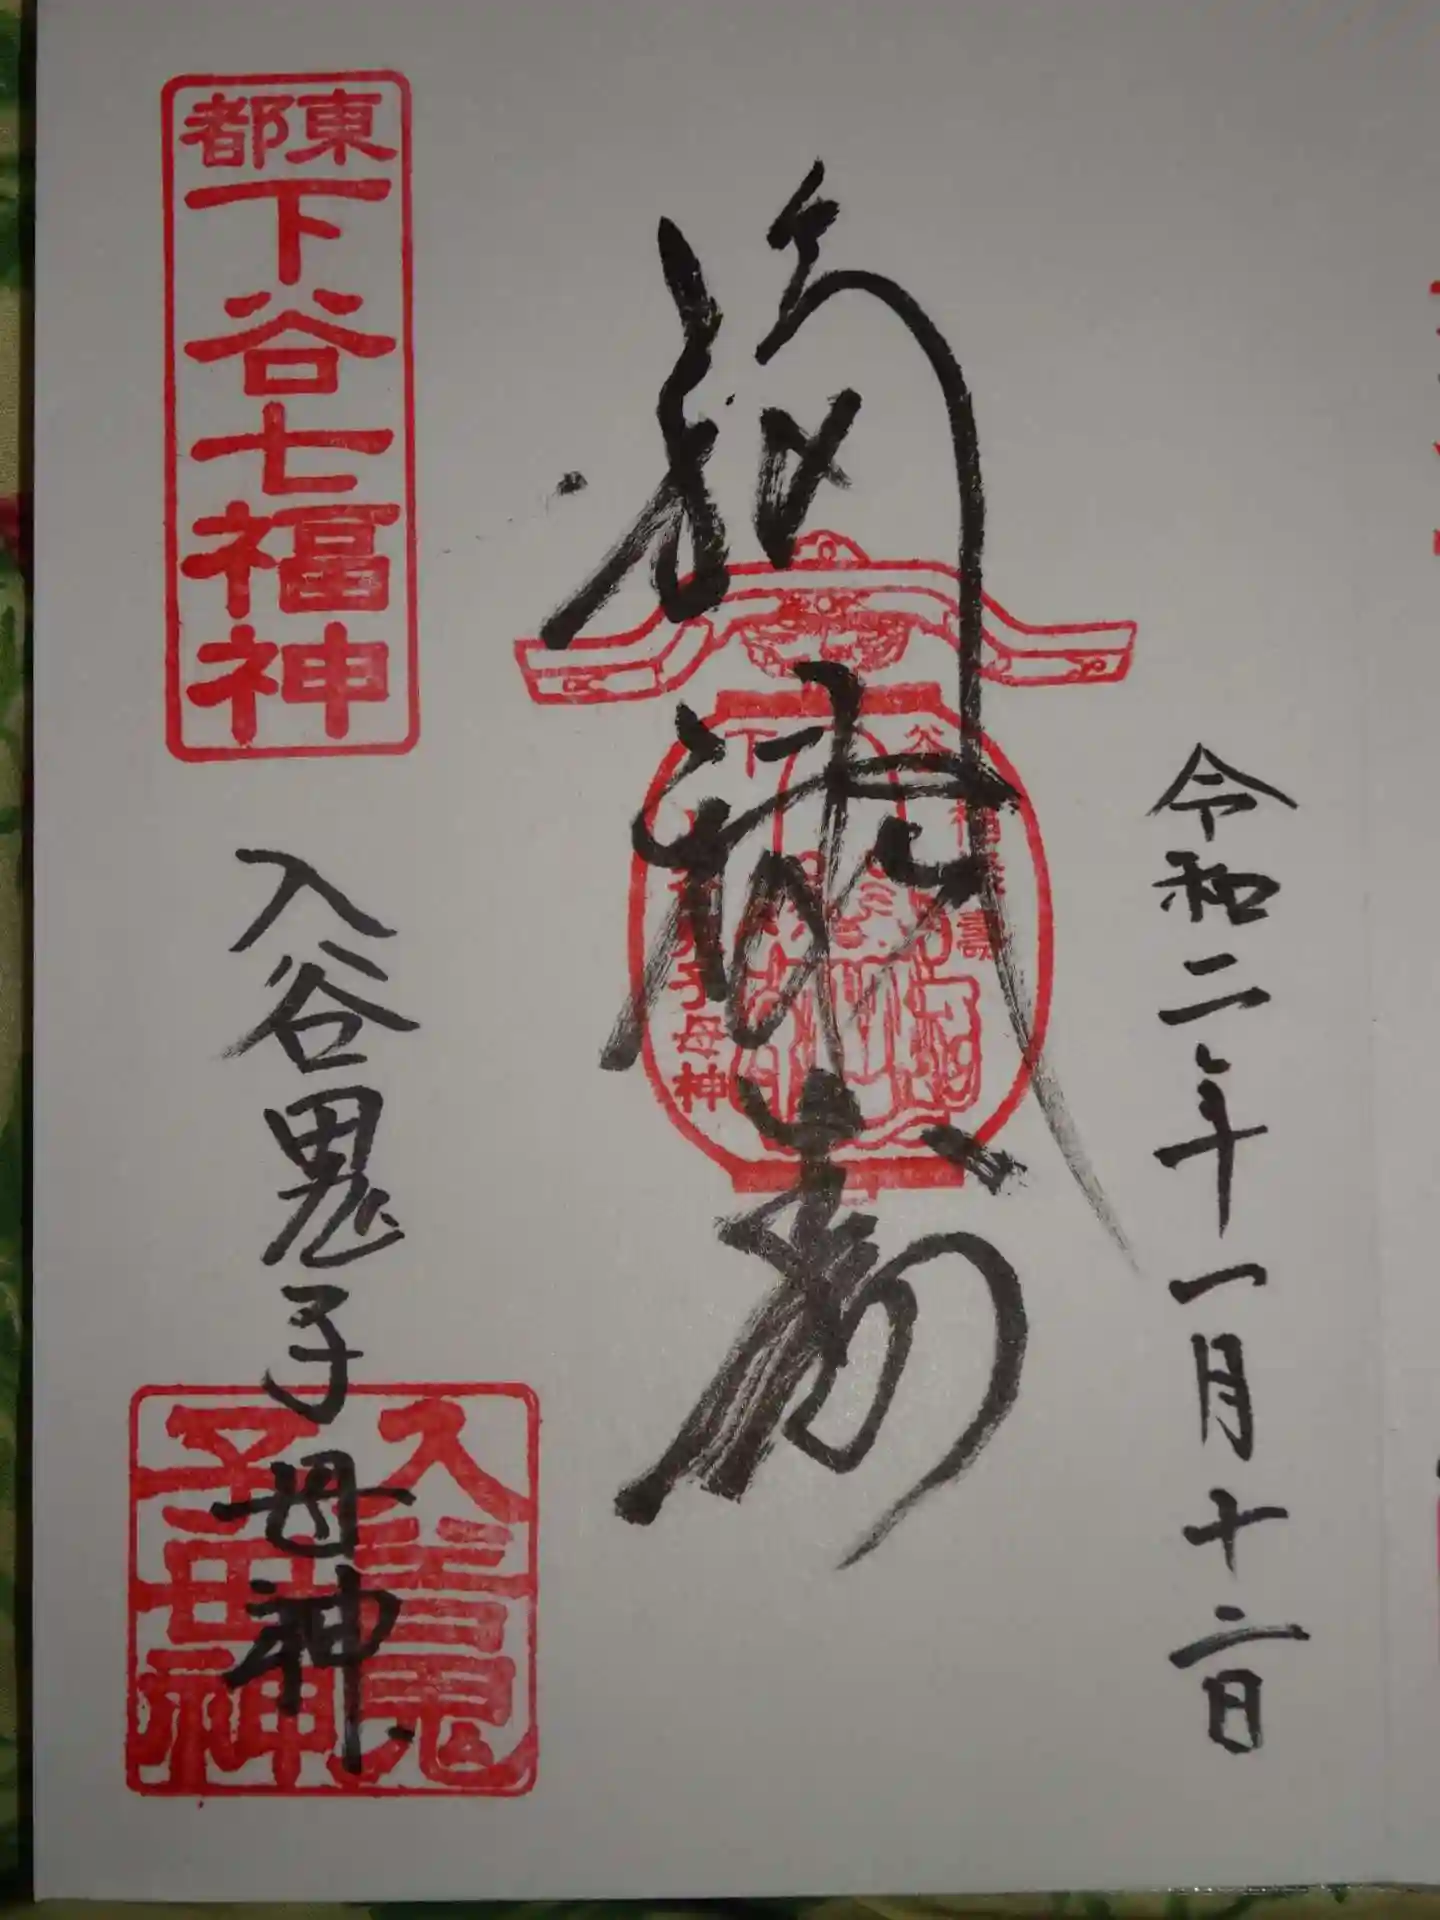 令和二年一月十二日
福禄寿
下谷
福禄壽
子母神
東都
下谷七福神
入谷鬼子母神
入谷鬼
子母神